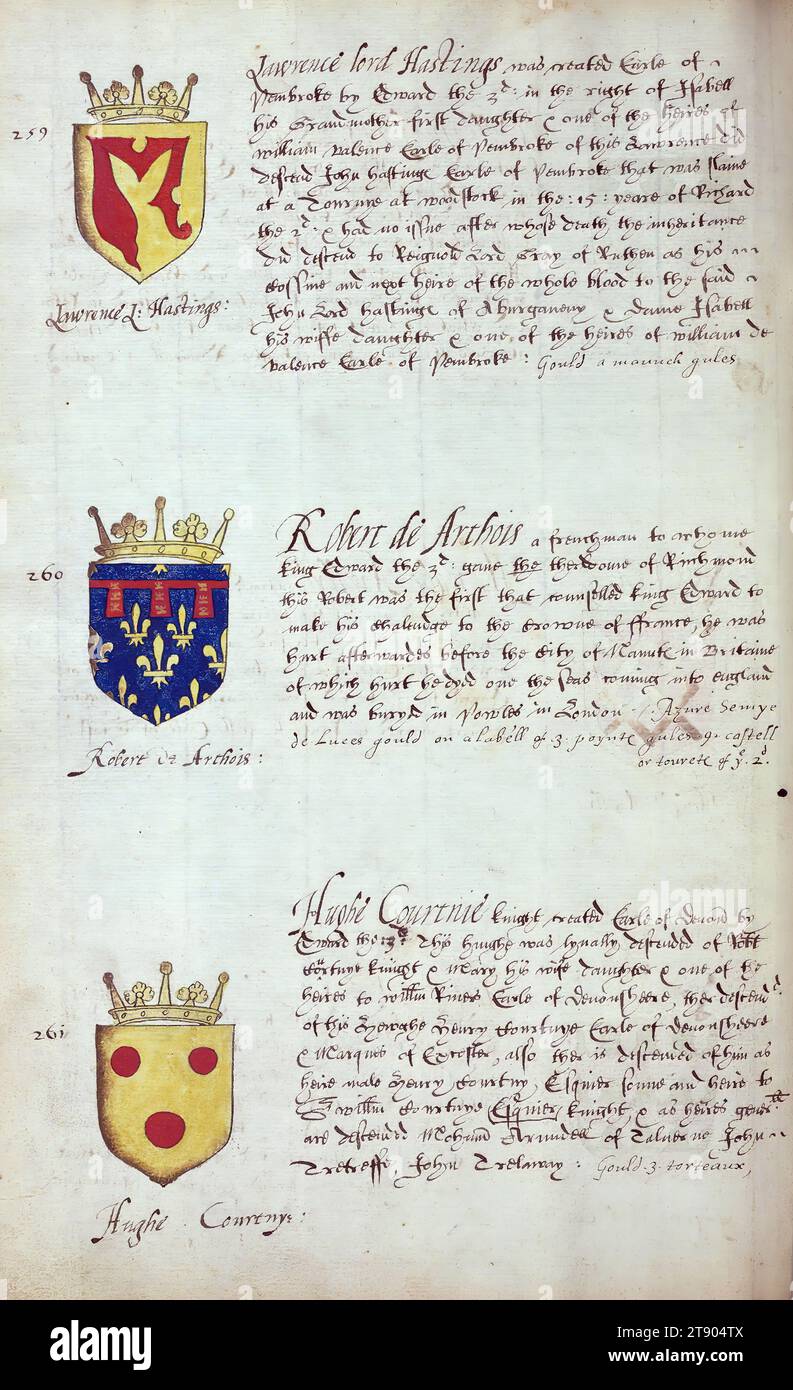 259
Lawrence lord Hastings was created Earle of
Penbroke by Edward the 3d: in the right of Isabell
his Grandmother first daughter & one of the heires of
William Valence Earle of Penbroke of this Lawrence did
descend John Hastinge Earle of Penbroke that was slaine
at a Torneye at Woodstock in the :15: yeare of Richard
the 2d: & had no issue after whose death the inheritance
did descend to Reignold Lord Gray of Ruthen as his
Cossine and next heire of the whole blood to the said
John Lord Hastinge of Aburganeny & Dame Isabell
his wiffe daughter & one of the heires of William de
Valence Earle of Penbroke: Gould a maunch gules
Lawrence L: Hastings:
260
Robert de Arthois a frenchman to whome
King Edward the 3d: gave the Therldome of Richmond
this Robert was the first that counselled King Edward to
make his chalendge to the Crowne of ffrance, he was
hurt afterwardes before the City of Vanute in Britaine
of which hurt he dyd one the seas coming into england
and was buryd in Powles in London Azure Semye
de Luces gould on a labell of 3. poynts gules 9. castell
or tourete of ye. 2d.
Robert de Arthois:
261
Hughe Courtnie knight created Earle of Devon by
Edward the 3d: This hughe was lynally descended of Robt
Cortnye knight & Mary his wife daughter & one of the
heires to Willm Rivers Earle of Devonsheere, ther descend
of this Hewghe Henry Courtnye Earle of Devonsheere
& Marques of Excester, also ther is descended of him as
heire male Henry Courtny, Esquier sonne and heire to
Sr Willm Courtnye Esquier, knight, & as heires
are descended Arundell of Talverne John
Tretreffe, John Trelaway: Gould. 3. torteaux,
Hughe Courtnye:
alamy
Image ID: 2T904TX
www.alamy.com